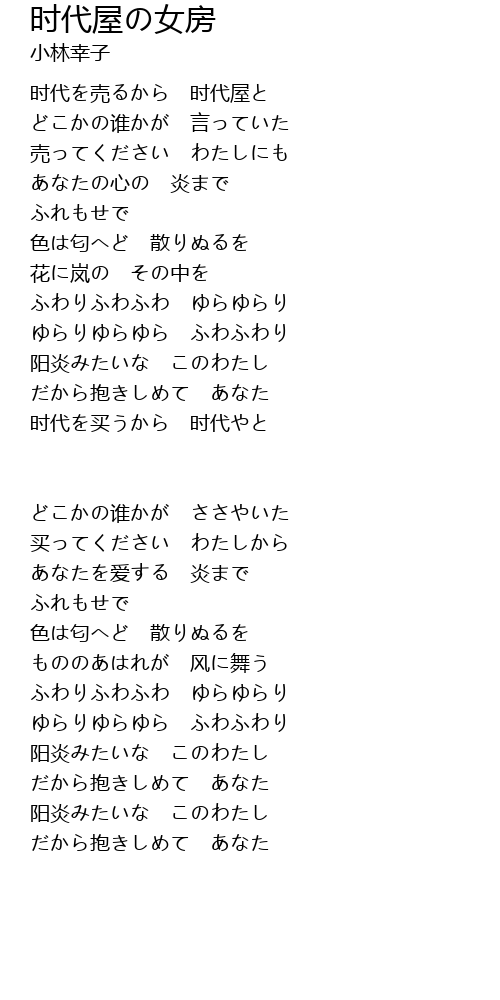 时代屋の女房
小林幸子
时代を売るから　时代屋と
どこかの谁かが　言っていた
売ってください　わたしにも
あなたの心の　炎まで
ふれもせで
色は匂へど　散りぬるを
花に岚の　その中を
ふわりふわふわ　ゆらゆらり
ゆらりゆらゆら　ふわふわり
阳炎みたいな　このわたし
だから抱きしめて　あなた
时代を买うから　时代やと
どこかの谁かが　ささやいた
买ってください　わたしから
あなたを爱する　炎まで
ふれもせで
色は匂へど　散りぬるを
もののあはれが　风に舞う
ふわりふわふわ　ゆらゆらり
ゆらりゆらゆら　ふわふわり
阳炎みたいな　このわたし
だから抱きしめて　あなた
阳炎みたいな　このわたし
だから抱きしめて　あなた